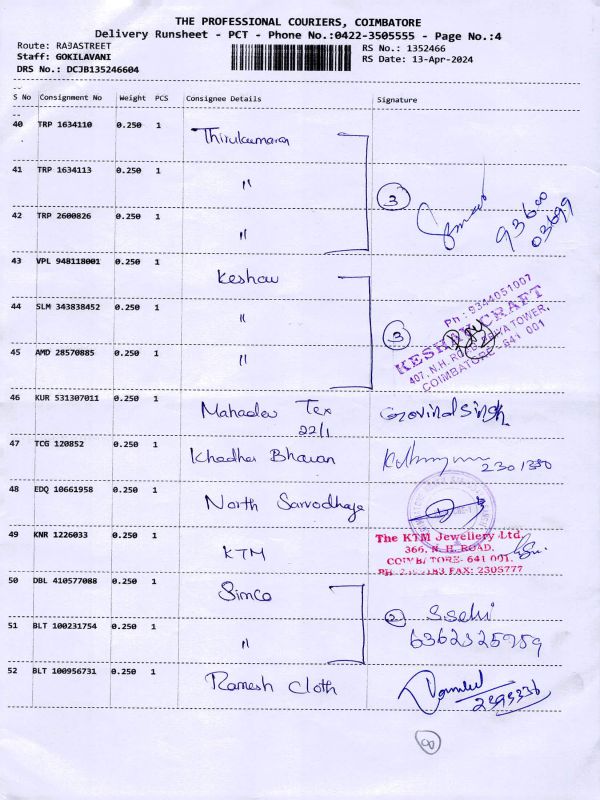 THE PROFESSIONAL COURIERS, COIMBATORE
Delivery Runsheet - PCT - Phone No.:0422-3505555 - Page No.:4
Route: RAJASTREET RS No.: 1352466
Staff: GOKILAVANI RS Date: 13-Apr-2024
DRS No.: DCJB135246604
S No Consignment No Weight PCS Consignee Details Signature
40 TRP 1634110 0.250 1 Thirukumaran
41 TRP 1634113 0.250 1 〃 3
42 TRP 2600826 0.250 1 〃 93600
03699
43 VPL 948118001 0.250 1 Keshav
44 SLM 343838452 0.250 1 〃 3
45 AMD 28570885 0.250 1 〃
Ph : 9344051007
KESHAV CRAFT
407, N.H. ROAD, TOWER,
COIMBATORE - 641 001
46 KUR 531307011 0.250 1 Mahadev Tex Govind Singh
22/1
47 TCG 120852 0.250 1 Khadhi Bhavan 2301350
48 EDQ 10661958 0.250 1 North Sarvodhaya
49 KNR 1226033 0.250 1 KTM
The KTM Jewellery Ltd.
366, N. H. ROAD,
COIMBATORE- 641 001.
FAX: 2305777
50 DBL 410577088 0.250 1 Simco 2
51 BLT 100231754 0.250 1 〃 6362325959
52 BLT 100956731 0.250 1 Ramesh Cloth